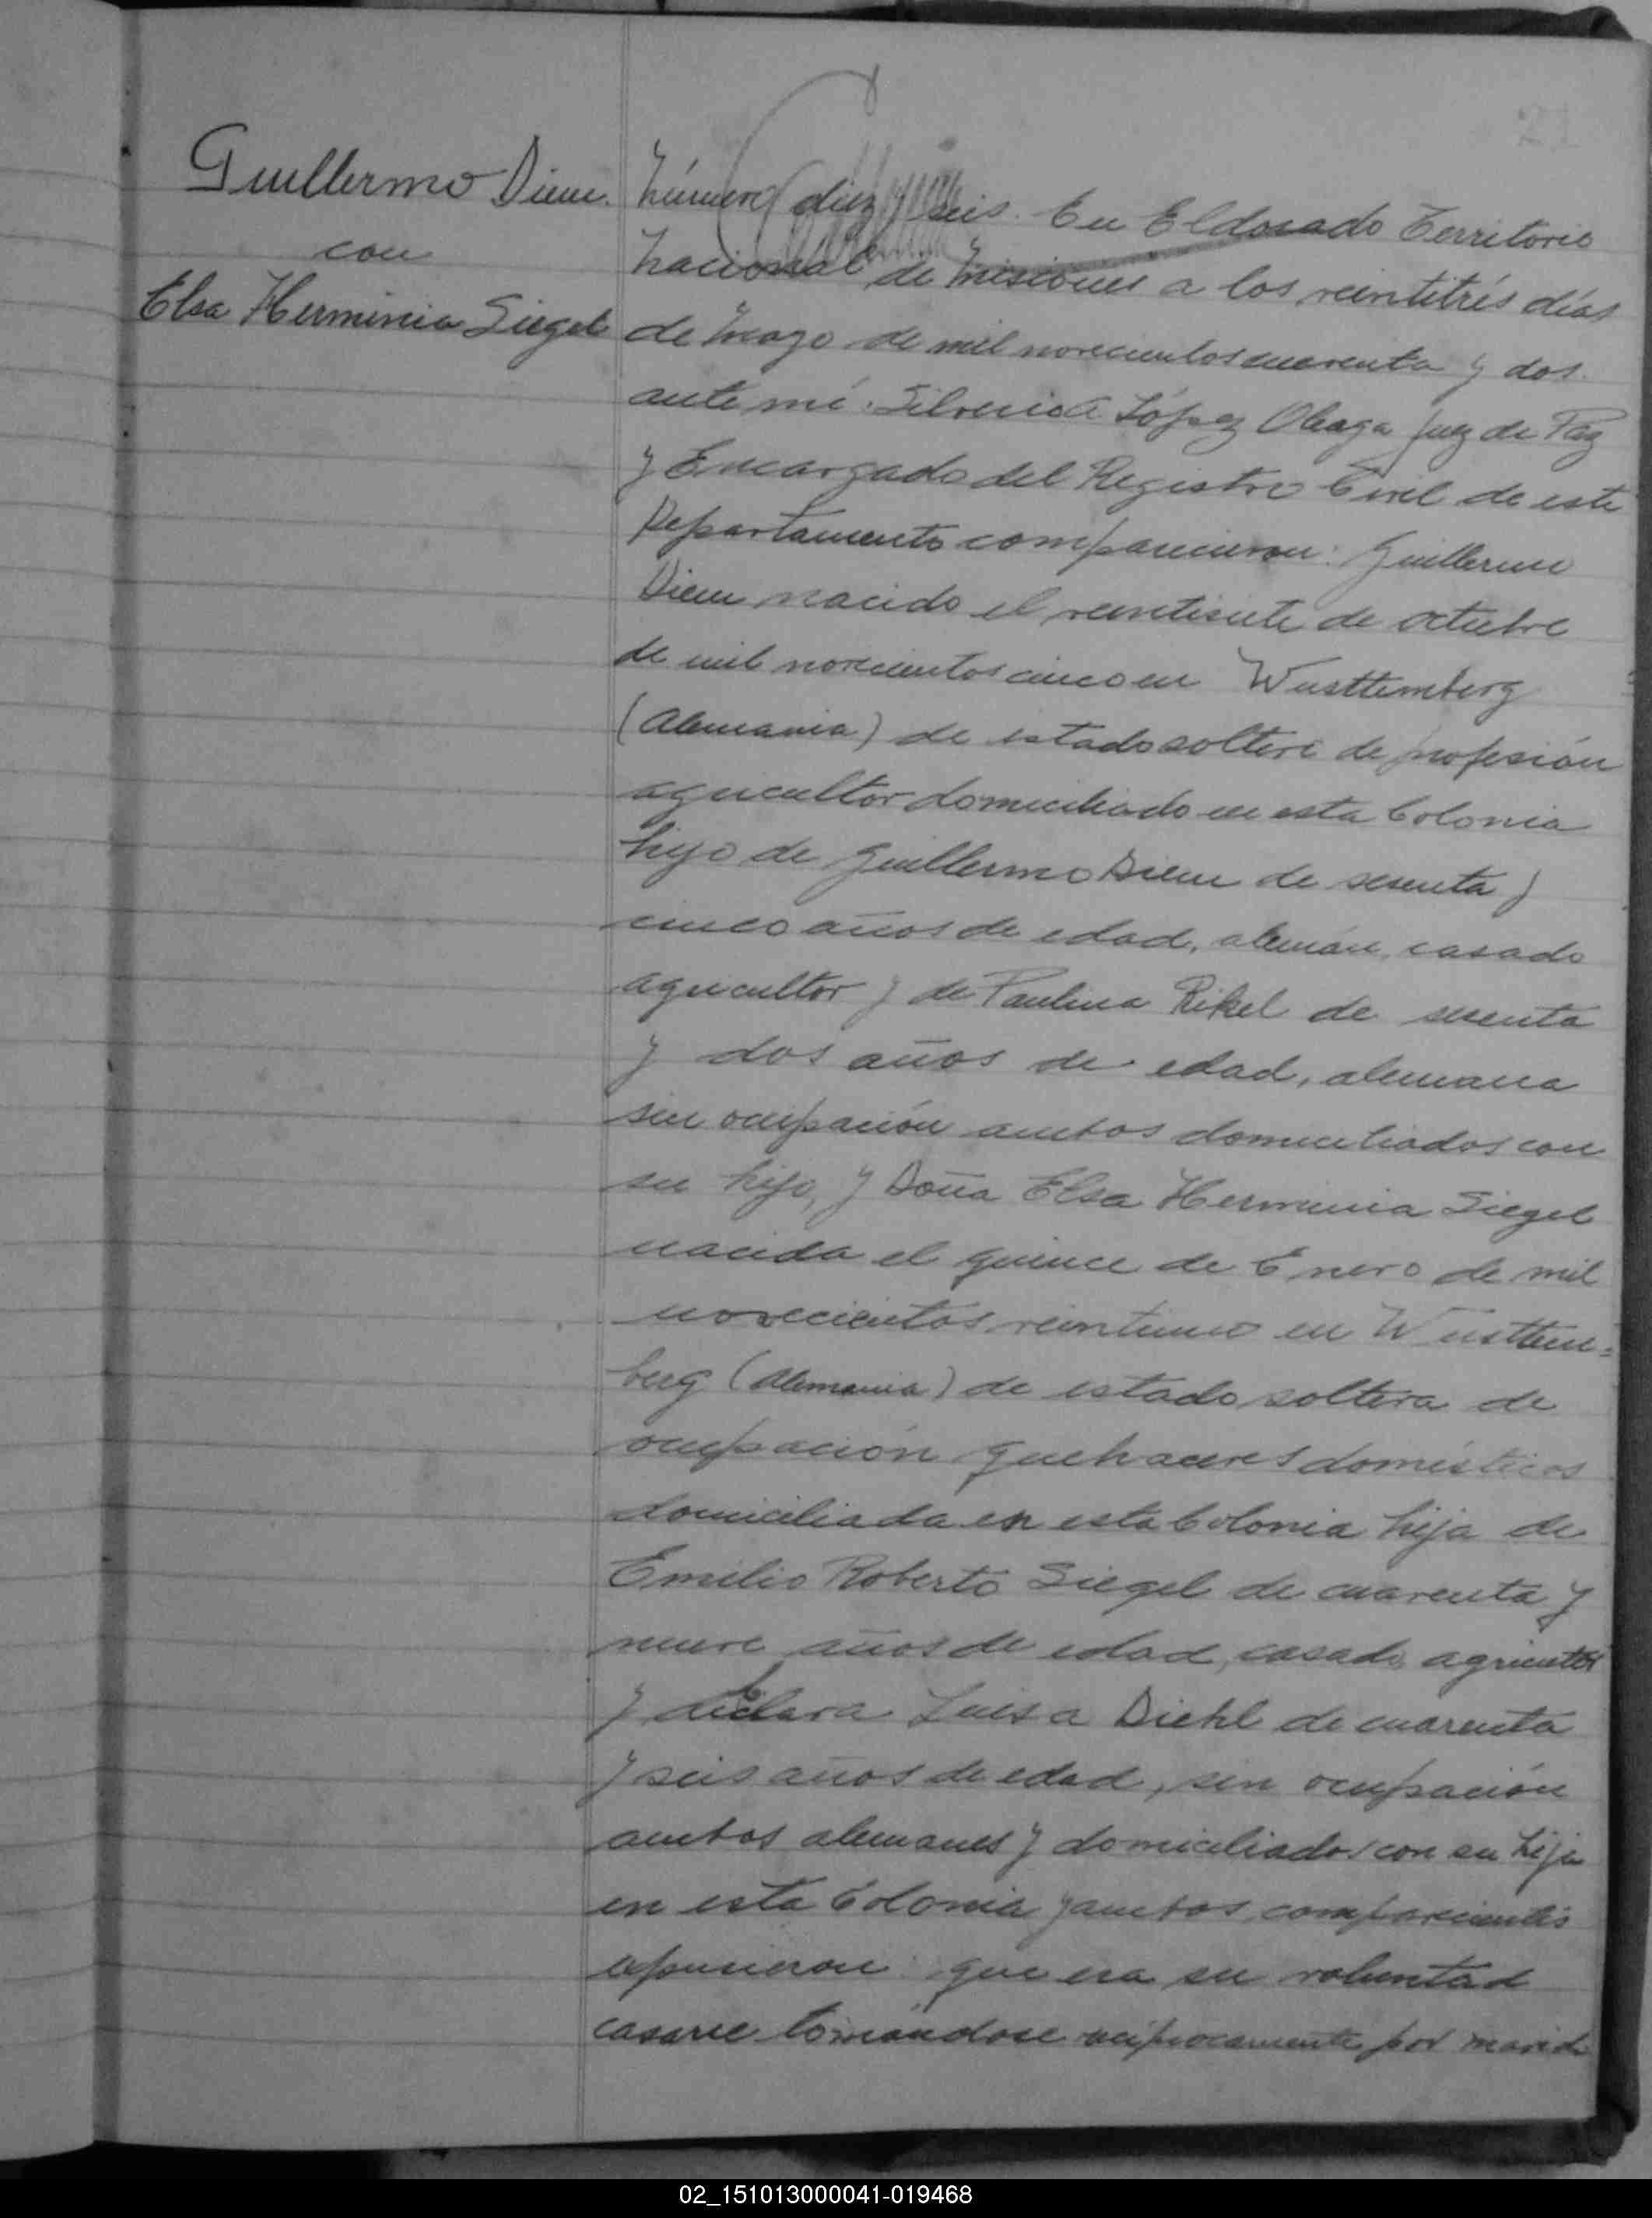 21
Guillermo Diem.
con
Elsa Herminia Siegel
Número diez y seis. En Eldorado Territorio
Nacional de Misiones a los veintitrés días
de Mayo de mil novecientos cuarenta y dos.
ante mí. Silverio López Oleaga Juez de Paz
y Encargado del Registro Civil de este
Departamento comparecieron: Guillermo
Diem nacido el veintisiete de octubre
de mil novecientos cinco en Wusttemberg
(Alemania) de estado soltero de profesión
agricultor domiciliado en esta Colonia
hijo de Guillermo Diem de sesenta y
cinco años de edad, alemán, casado
agricultor y de Paulina Rikel de sesenta
y dos años de edad, alemana
sin ocupación ambos domiciliados con
su hijo, y Doña Elsa Herminia Siegel
nacida el quince de Enero de mil
novecientos veintiuno en Wusttem=
berg (Alemania) de estado soltera de
ocupación quehaceres domésticos
domiciliada en esta Colonia hija de
Emilio Roberto Siegel de cuarenta y
nueve años de edad, casado, agricultor
y Clara Luisa Diehl de cuarenta
y seis años de edad, sin ocupación
ambos alemanes y domiciliados con su hija
en esta Colonia y ambos comparecientes
expusieron: que era su voluntad
casarse tomándose recíprocamente por marido
02_151013000041-019468